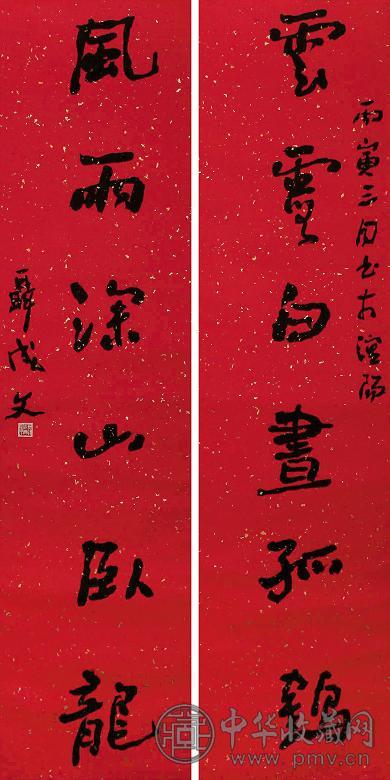 丙寅三月书於瀋陽
雲霄白晝孤鶴
風雨深山臥龍
聶成文
中华收藏网
www.pmv.cn